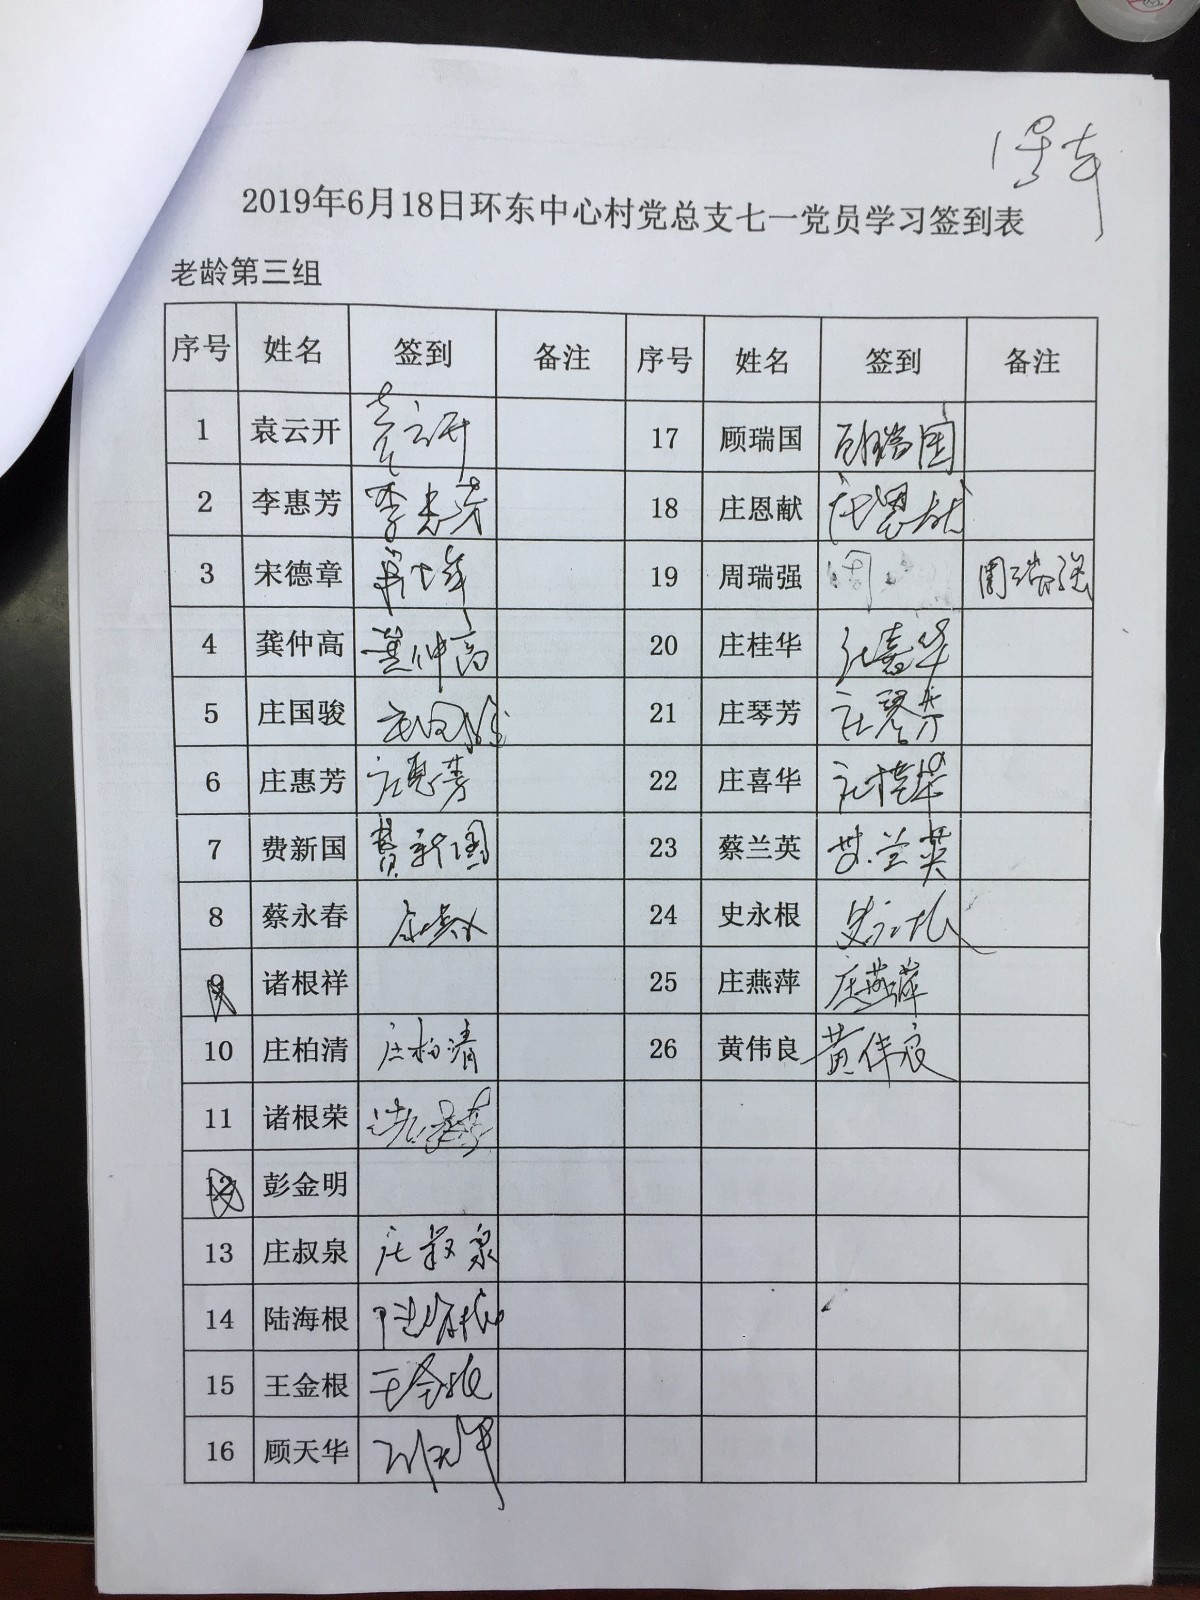 2019年6月18日环东中心村党总支七一党员学习签到表
老龄第三组
序号 姓名 签到 备注 序号 姓名 签到 备注
1 袁云开 袁云开 17 顾瑞国 顾瑞国
2 李惠芳 李惠芳 18 庄恩献 庄恩献
3 宋德章 19 周瑞强 周 周瑞强
4 龚仲高 龚仲高 20 庄桂华 庄喜华
5 庄国骏 庄国骏 21 庄琴芳 庄琴芳
6 庄惠芳 庄惠芳 22 庄喜华 庄桂华
7 费新国 费新国 23 蔡兰英 蔡兰英
8 蔡永春 24 史永根 史永根
9 诸根祥 25 庄燕萍 庄燕萍
10 庄柏清 庄柏清 26 黄伟良 黄伟良
11 诸根荣
12 彭金明
13 庄叔泉 庄叔泉
14 陆海根 陆海根
15 王金根 王金根
16 顾天华 顾天华